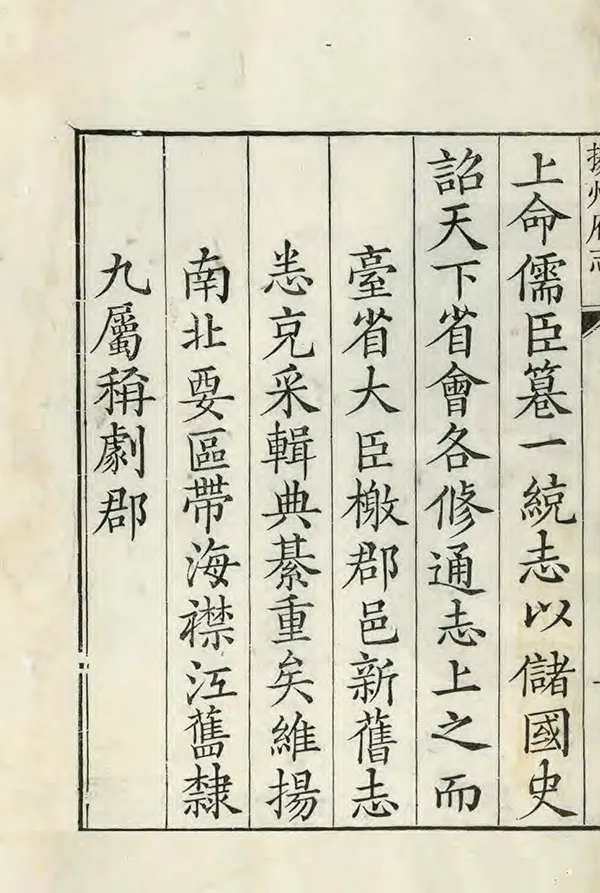 揚州府志
上命儒臣篹一統志以儲國史
詔天下省會各修通志上之而
臺省大臣檄郡邑新舊志
悉克采輯典綦重矣維揚
南北要區帶海襟江舊隸
九屬稱劇郡